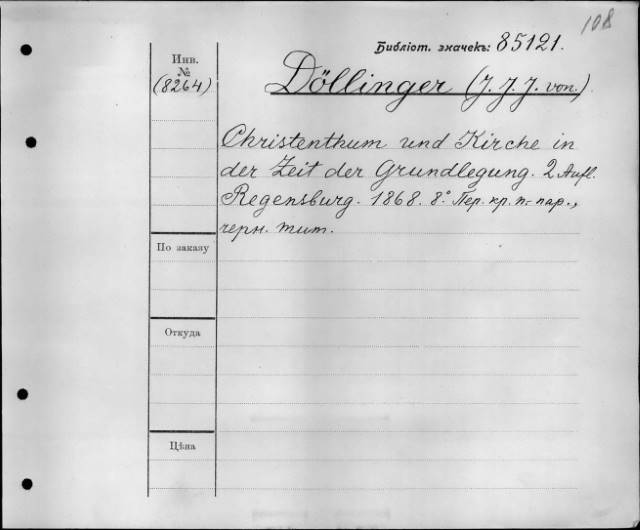 108
Библіот. значекъ: 85121.
Инв.
№
(8264)
Döllinger (J. J. J. von.)
Christenthum und Kirche in
der Zeit der Grundlegung. 2 Aufl.
Regensburg. 1868. 8.° Пер. кр. п.-пар.,
черн. тит.
По заказу
Откуда
Цѣна